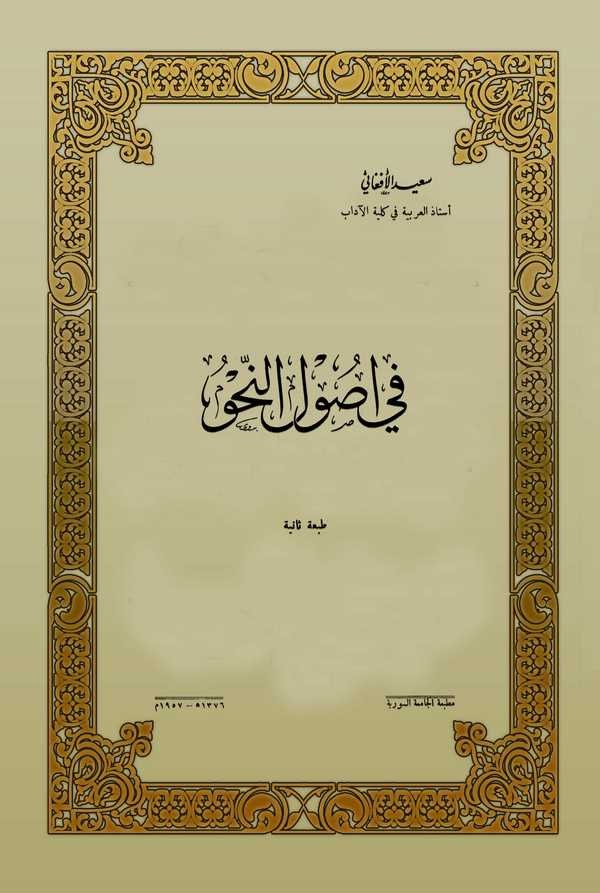 سعيد الأفغاني
أستاذ العربية في كلية الآداب
في اصُوْل النّحْوُ
طبعة ثانية
مطبعة الجامعة السورية
١٣٧٦هـ – ١٩٥٧م